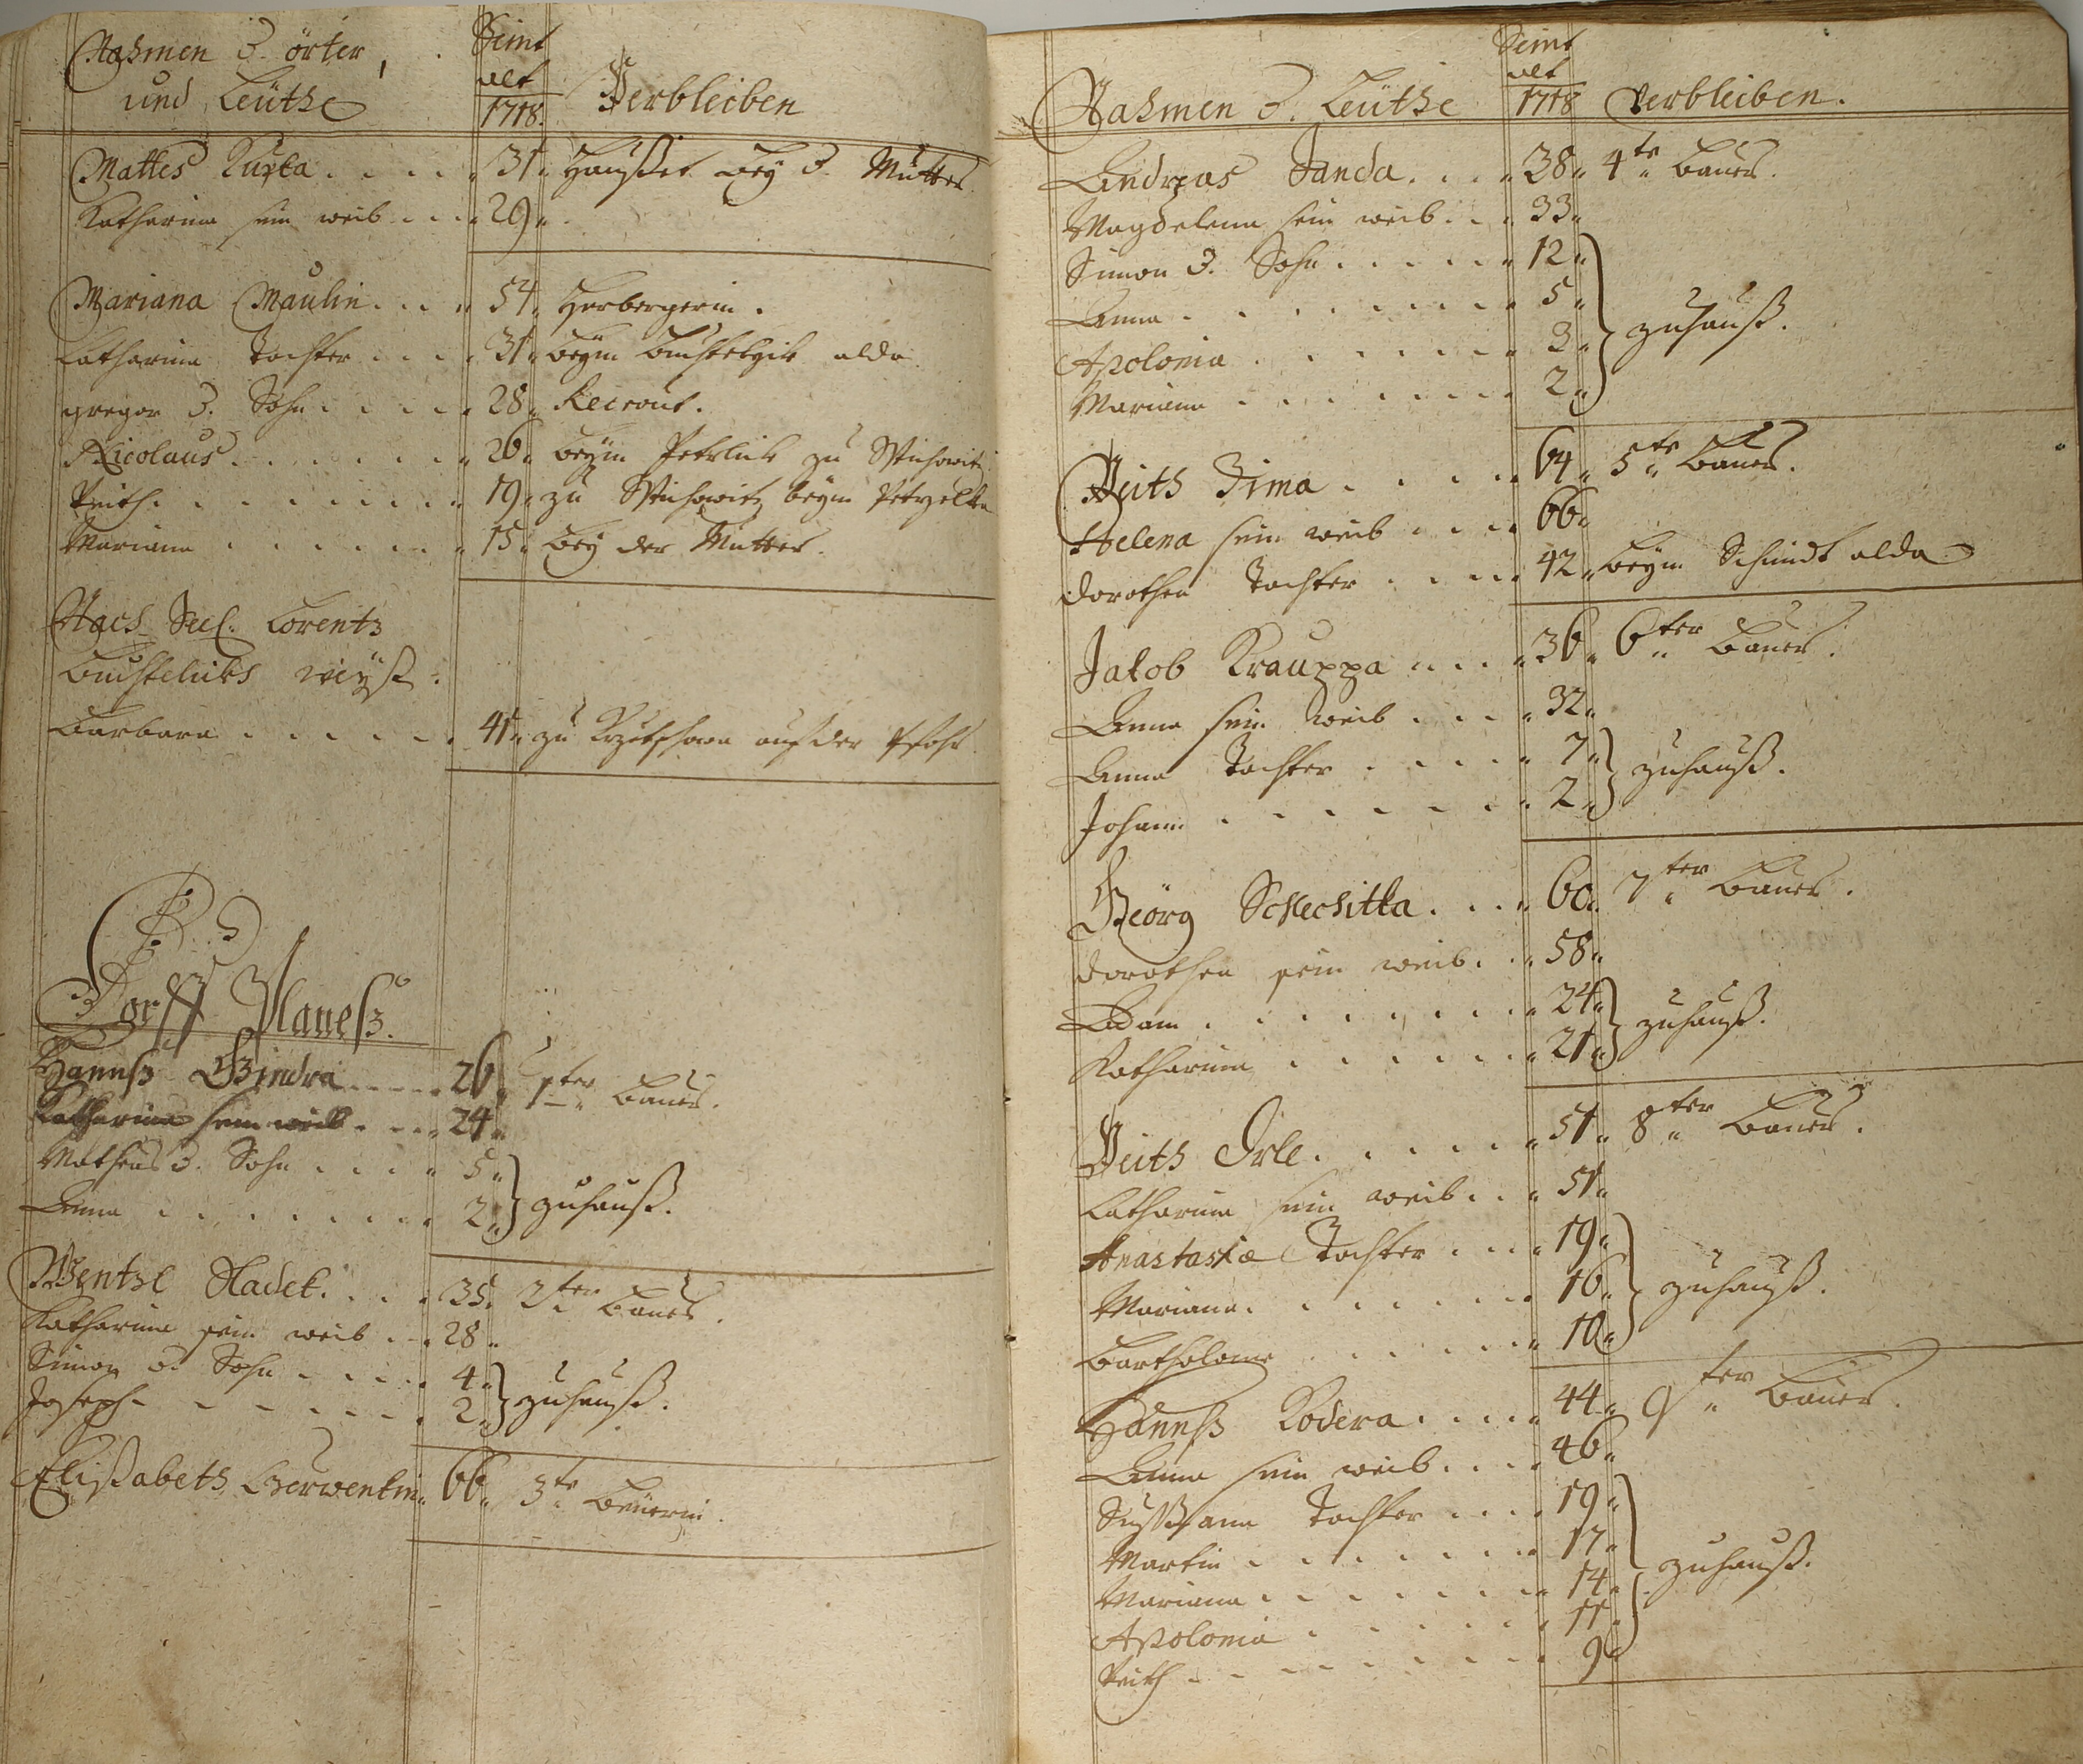 Nahmen d. örter,
und Leüthe
Seint
alt
1718.
Verbleiben
Mattes Kurka . . . . 31. Haußet bey d. Mutter.
Katharina sein weib . . . 29.
Mariana Maulin . . . 54. Herbergerin.
Catharina Tochter . . . 31. beym alda
gregor d. Sohn . . . . 28. Recrout.
Nicolaus . . . . . . 26. beym Petrlik zu
Veith . . . . . . . . 19. zu beym
Mariana . . . . . . 15. bey der Mutter.
Nach Seel. Lorentz
weyß:
Barbara . . . . . . 41. zu auf der
Dorff Planeß.
Hannß Gindra . . . . . 26. 1ter Bauer.
Katharina sein weib . . . 24.
Matheus d. Sohn . . . . 5.
Anna . . . . . . . . 2. zuhauß.
Wentzl Hadek . . . . 35. 2ter Bauer.
Katharina sein weib . . 28.
Simon d. Sohn . . . . 4.
Joseph . . . . . . 2. zuhauß.
Elißabeth Czerwenkin. 66. 3te Beüerin.
Nahmen d. Leüthe
Seint
alt
1718
Verbleiben.
Andreas Janda . . . 38. 4te Bauer.
Magdalena sein weib . . . 33.
Simon d. Sohn . . . . . 12.
Anna . . . . . . . . 5.
Apolonia . . . . . . . 3. zuhauß.
Mariana . . . . . . . 2.
Veith Zima . . . . 64. 5te Bauer.
Helena sein weib . . . . 66.
Dorothea Tochter . . . . 42. beym Schmidt alda
Jakob Krauppa . . . . 36. 6ter Bauer.
Anna sein weib . . . . 32.
Anna Tochter . . . . . 7.
Johann . . . . . . . 2. zuhauß.
Geörg Schlechitka . . . . 60. 7ter Bauer.
Dorothea sein weib . . . 58.
Adam . . . . . . . . 24.
Katharina . . . . . . 21. zuhauß.
Veith Irle . . . . . . 51. 8ter Bauer.
Catharina sein weib . . . 51.
Anastasiæ Tochter . . . 19.
Mariana . . . . . . . 16. zuhauß.
Bartholome . . . . . . 10.
Hannß Kodera . . . . 44. 9ter Bauer.
Anna sein weib . . . . 46.
Sußanna Tochter . . . . 19.
Martin . . . . . . . . 17.
Mariana . . . . . . . 14. zuhauß.
Apolonia . . . . . . 11.
Veith . . . . . . . . 9.